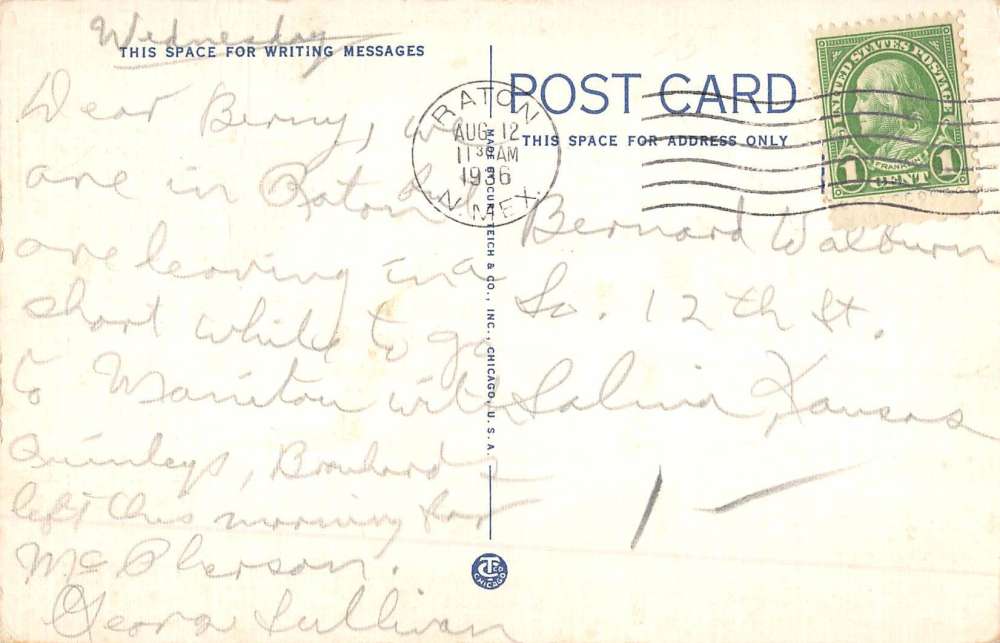 Wednesday
THIS SPACE FOR WRITING MESSAGES
Dear Berny, we
are in Raton but
are leaving in a
short while to go
to Manitou with
left this morning for
McPherson.
Sullivan
MADE BY CURT TEICH & CO., INC., CHICAGO, U.S.A.
C.T. CO.
CHICAGO
POST CARD
THIS SPACE FOR ADDRESS ONLY
RATON
AUG 12
11 30 AM
1936
N. MEX.
UNITED STATES POSTAGE
FRANKLIN
1 CENT 1
Bernard Walburn
So. 12th St.
Salina, Kansas